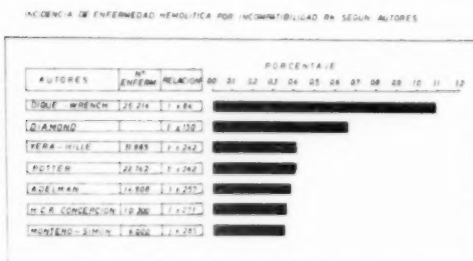 INCIDENCIA DE ENFERMEDAD HEMOLITICA POR INCOMPATIBILIDAD Rh SEGUN AUTORES
PORCENTAJE
AUTORES Nº ENFERM. RELACION 0.0 0.1 0.2 0.3 0.4 0.5 0.6 0.7 0.8 0.9 1.0 1.1 1.2
DIQUE WRENCH 25.214
DIAMOND 1 x 150
VERA-WILLE 1 x 242
POTTER 22.742 1 x 242
ADELMAN 1 x 257
H.C.R. CONCEPCION 10.300
MONTERO-SIMON 6.000